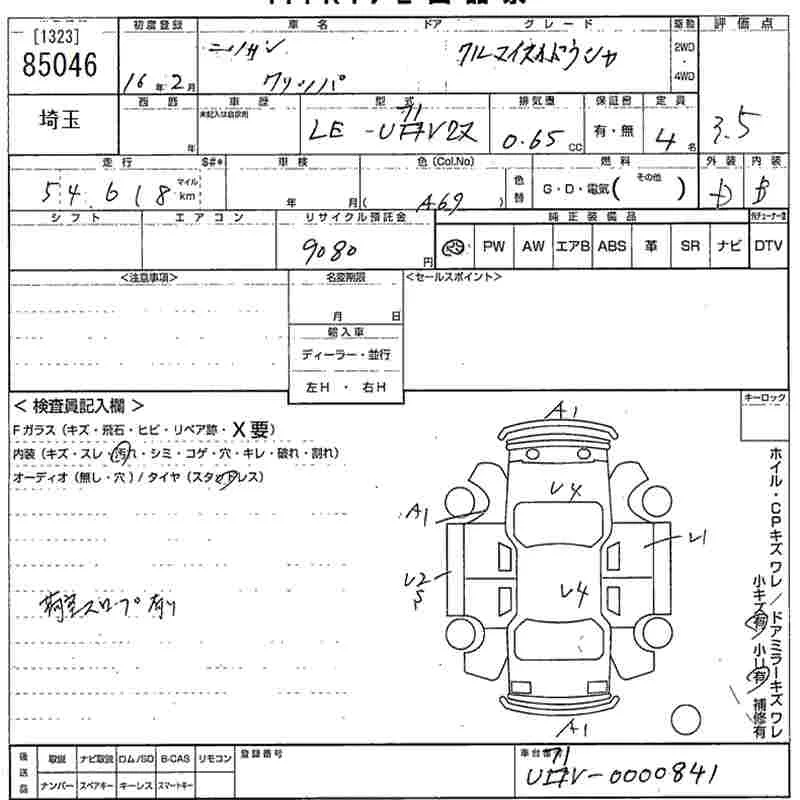 [1323]
85046
初度登録 車名 ドア グレード 駆動 評価点
16年2月 ニッサン クリッパー クルマイスイドウシャ 2WD・4WD 3.5
埼玉
西暦 車歴 型式 排気量 保証書 定員
年 未記入は自家用 LE 0.65 CC 有・無 4名
走行 S#* 車検 色(Col.No) 燃料 外装 内装
54,618 マイル km 年 月 ( A69 ) 色替 G・D・電気( その他 ) D B
シフト エアコン リサイクル預託金 純正装備品
9080円 PW AW エアB ABS 革 SR ナビ DTV
<注意事項> 名変期限 <セールスポイント>
月 日
輸入車
ディーラー・並行
左H・右H
<検査員記入欄> キーロック
Fガラス(キズ・飛石・ヒビ・リペア跡・X要)
内装(キズ・スレ・汚れ・シミ・コゲ・穴・キレ・破れ・割れ)
オーディオ(無し・穴)/タイヤ(スタッドレス)
荷室スロープ有り
A1
U4
A1
U1
U2
S
U4
A1
ホイル・CPキズ ワレ/ドアミラーキズ ワレ
小キズ有 小U有 補修有
後送品 取説 ナビ取説 ロム/SD B-CAS リモコン 登録番号 車台番号
ナンバー スペアキー キーレス スマートキー
-0000841